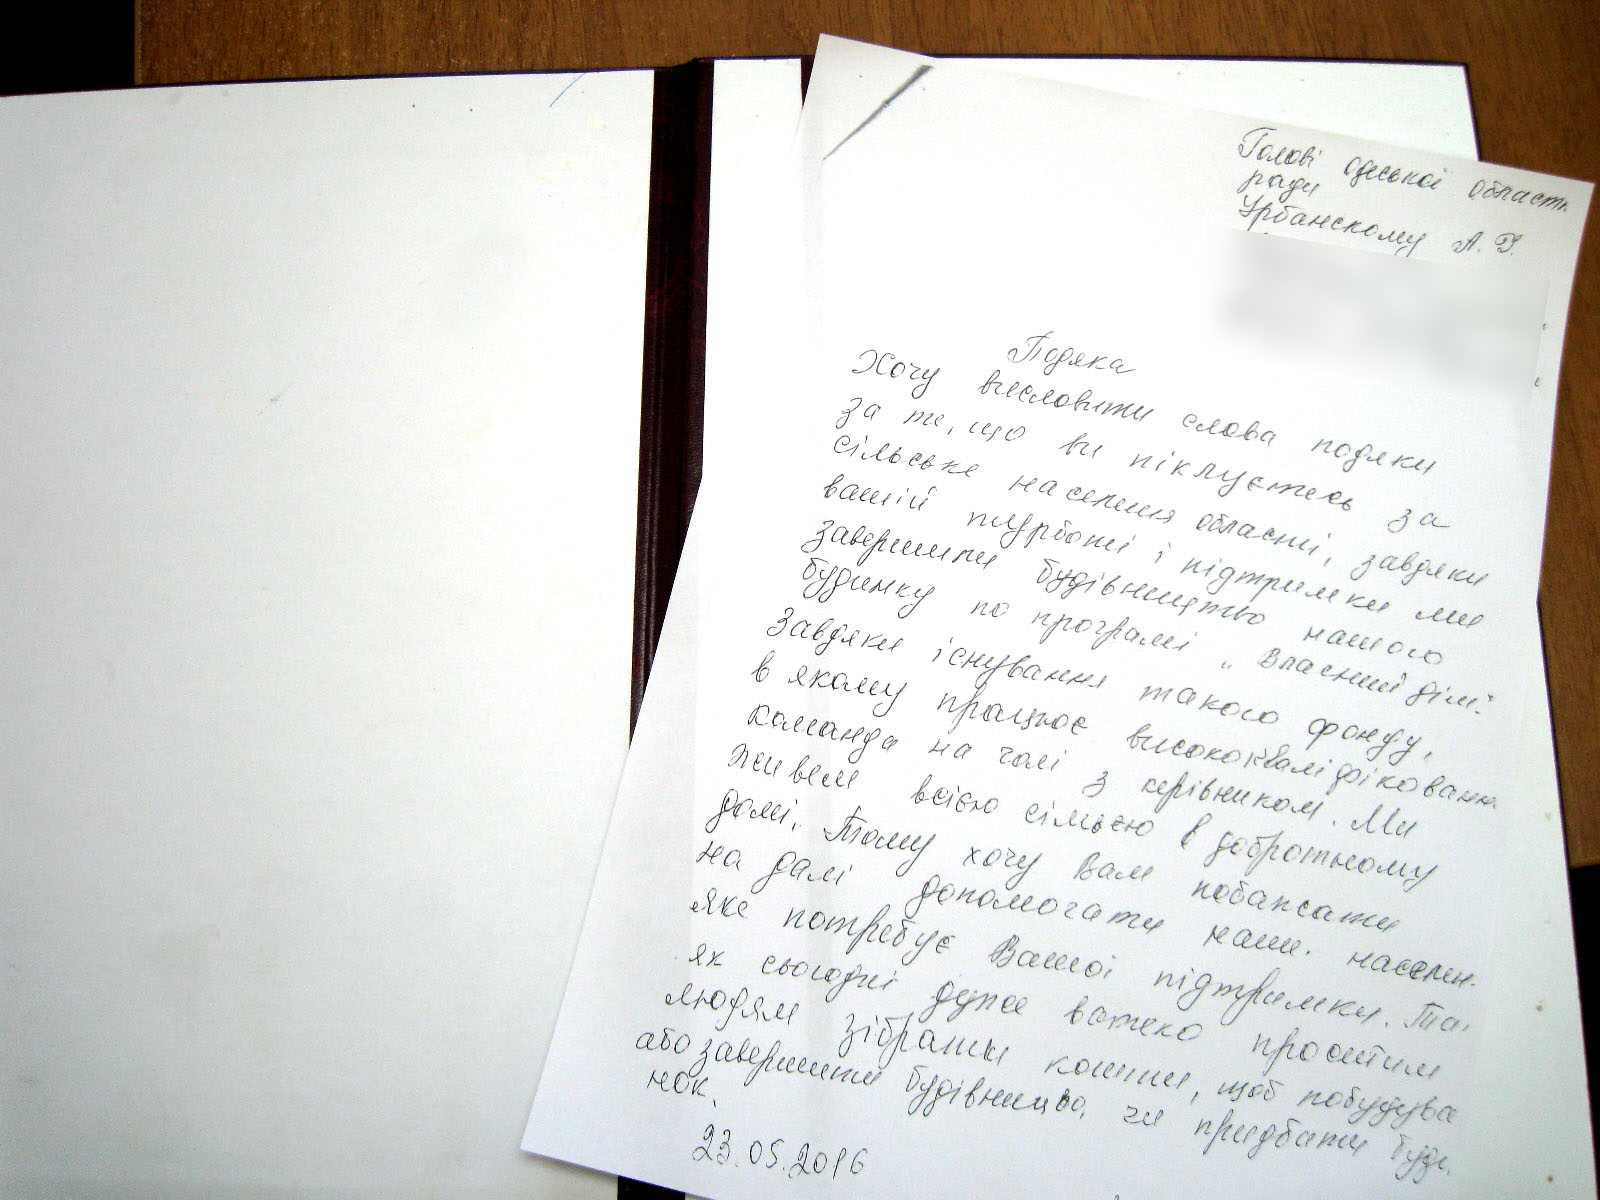 Голові одеської област.
ради
Урбанскому А. І.
Подяка
Хочу висловити слова подяки
за те, що ви піклуєтесь за
сільське населення області, завдяки
вашій турботі і підтримки ми
завершили будівництво нашого
будинку по програмі „Власний дім".
Завдяки існування такого фонду,
в якому працює висококваліфікованн.
команда на чолі з керівником. Ми
живем всією сімьєю в добротному
домі. Тому хочу Вам побажати
на далі допомогати наш. населен.
яке потребує Вашої підтримки. Та.
як сьогодні дуже важко простим
людям зібрати кошти, щоб побудува
або завершити будівницво, чи придбати буди.
нок.
23.05.2016